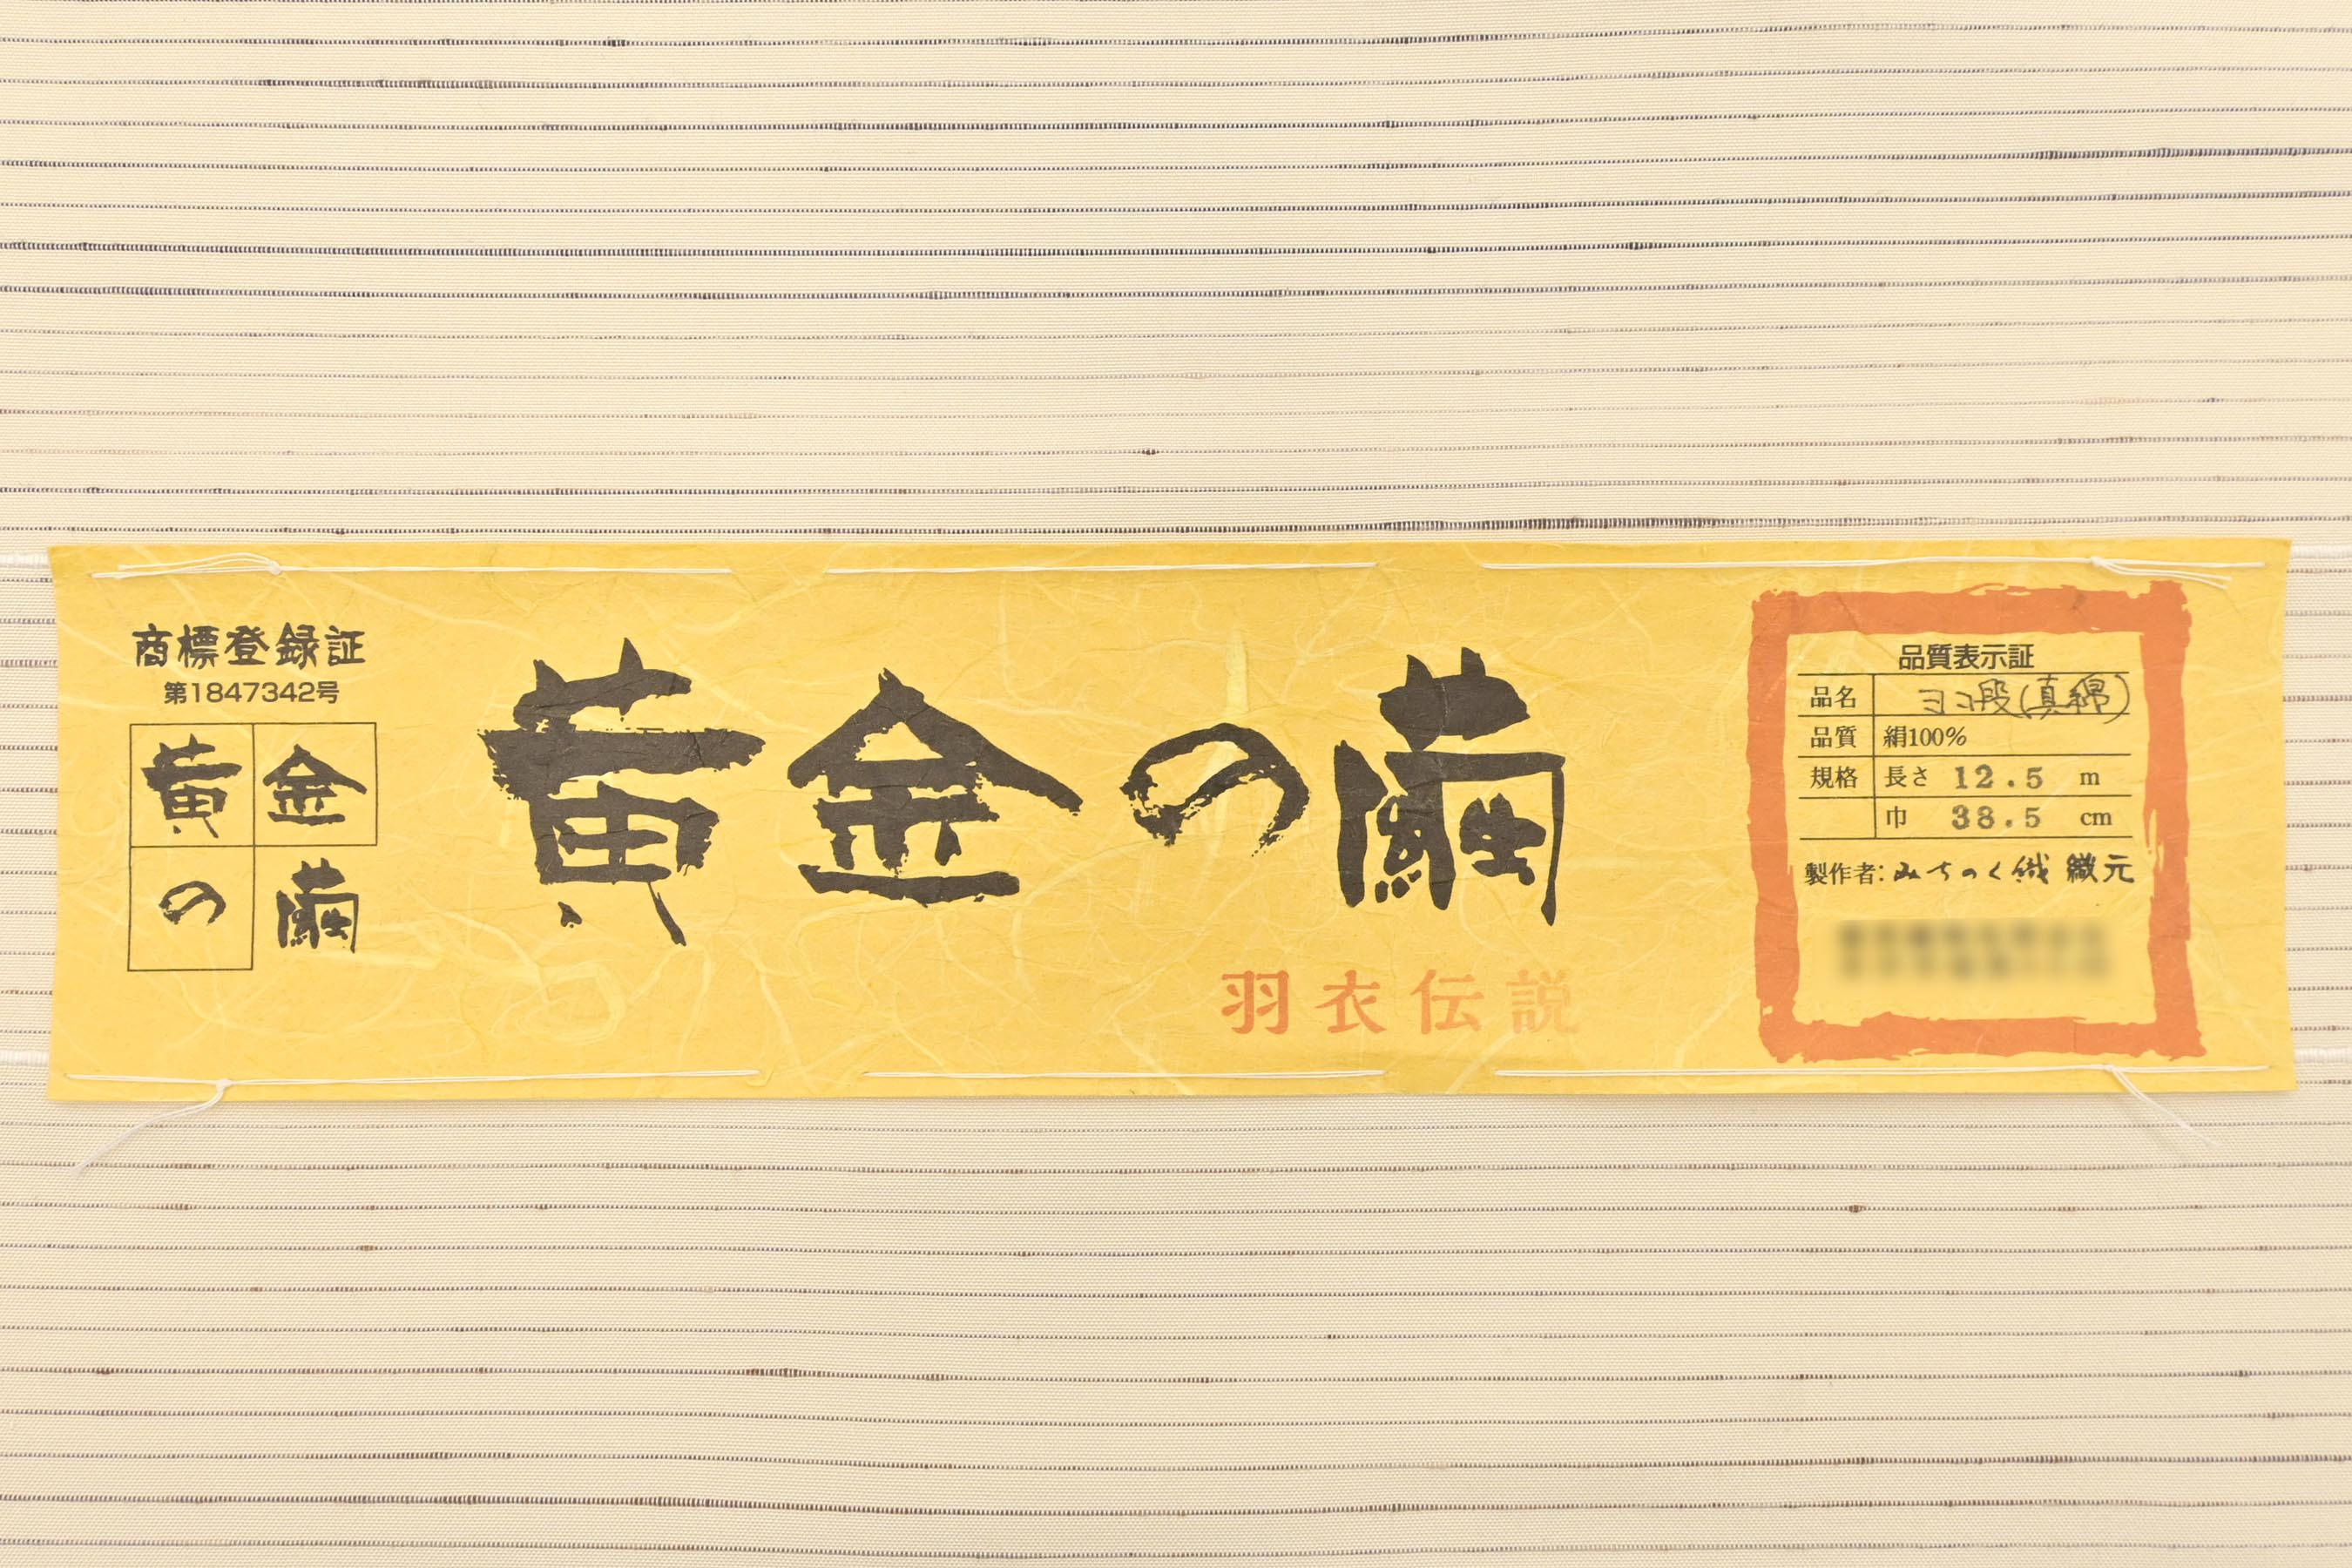 商標登録証
第1847342号
黄金
の繭
黄金の繭
羽衣伝説
品質表示証
品名 ヨコ段(真綿)
品質 絹100%
規格 長さ 12.5 m
巾 38.5 cm
製作者:みちのく織 織元